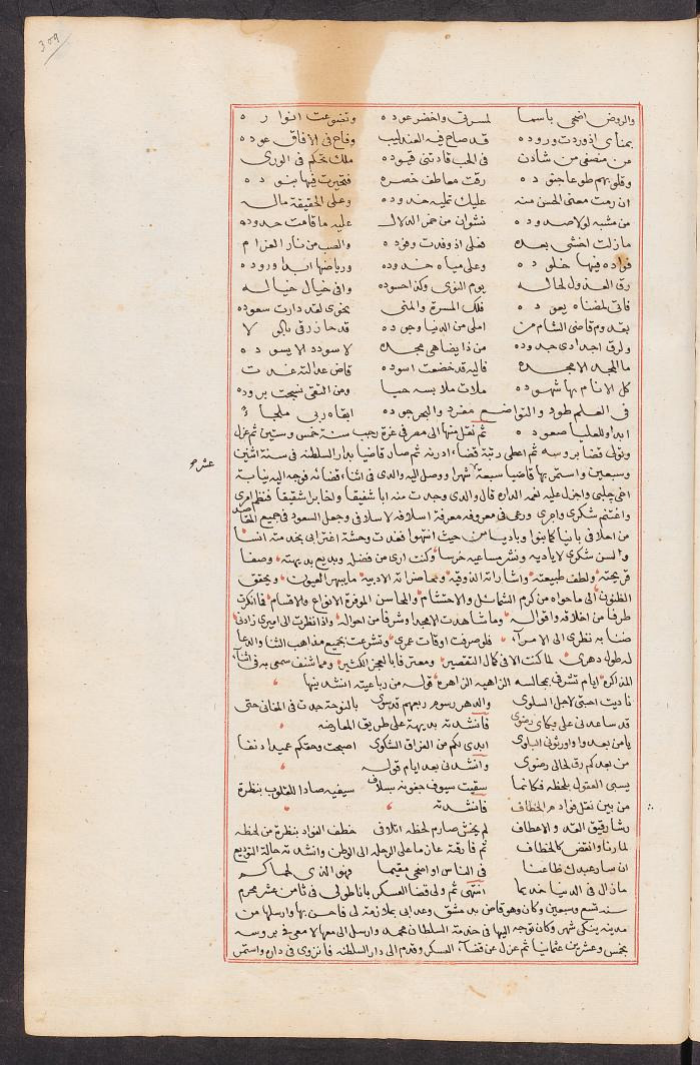 ٣٥٩
والروض اضحى باسما لمسرتى واخضر عوده وتضوعت انوا ره
بمناى اذ وردت وروده قد صاح فيه العندليب وفاح فى الآفاق عوده
من منصفى من شادن فى الحب قادتنى قيوده ملك تحكم فى الورى
وقلوبهم طوعا جنوده رقت معاطف خصره فتحيرت فيها بنوده
ان رمت معنى الحسن منه عليك تمليه خدوده وعلى الحقيقة ماله
من مشبه لولا صدوده نشوان من خمر الدلال عليه ما قامت حدوده
ما زلت اخشى بعده فعلى اذ وفدت وفوده والصب من نار الغرام
فؤاده فيها خلوده وعلى مياه خدوده ورياضها ابدا وروده
رق العذول لحاله يوم النوى وكذا حسوده وافى خيال خياله
فاتى لمضناه يعوده فلك المسرة والمنى نحوى لقد دارت سعوده
بقدوم قاضى الشام من املى من الدنيا وجوده قد حاز رقى
ولرق اجدادى جدوده من ذا يضاهى مجده لا سودد الا يسوده
ما المجد الا مجده فاليه قد خضعت اسوده قاض عدالته غدت
كل الانام بها شهوده ملات ملابسه حيا ومن التقى نسجت بروده
فى العلم طود والتواضع مفرد والبحر جوده ابقاه ربى ملجأ
ابدا وللعليا صعوده ثم نقل منها الى مصر فى غرة رجب سنة خمس وستين ثم عزل
وتولى قضا بروسه ثم اعطى رتبة قضاء ادرنه ثم صار قاضيا بدار السلطنه فى سنة اثنين
وسبعين واستمر بها قاضيا سبعة عشر شهرا ووصل اليه والدى فى اثناء قضائه فوجه اليه نيابة
اخى چلبى واجزل عليه نعمه الداره قال والدى وجدت منه ابا شفيقا واخا برا شقيقا فنظم امرى
واغتنم شكرى واجرى ورعى فى معروفه معرفة اسلافه لاسلافى وجعل السعود فى جميع المقاصد
من احلافى بانيا كما بنوا وباديا من حيث انتهوا فغدت وحشة اغترابى بخدمته انسا
والسن شكرى لاياديه ونشر مساعيه خرسا وكنت ارى من فضله وبديع بديهته وصفا
قريحته ولطف طبيعته واشاراته الذوقية ومحاضراته الادبية ما يبهر العيون ويحقق
الظنون الى ما حواه من كرم الشمائل والاحتشام والمحاسن الموفرة الانواع والاقسام فانكرت
طرفا من اخلاقه واقواله وما شاهدت الا مجدا وشرفا من احواله واذا نظرت الى اميرى زادنى
ضنا به نظرى الى الامرآء فلو صرفت اوقات عمرى وتشرعت بجميع مذاهب الثنا والدعا
له طول دهرى لما كنت الا فى كمال التقصير ومعترفا بالعجز الكثير ومما شنف سمعى به فى اثناء
المذاكرة ايام تشرفى بمجالسه الزاهيه الزاهره قوله من رباعيته انشدنيها
ناديت احبتى لاجل السلوى والدهر رسوم ربعهم قد سوى بالنوحة جدت فى المغانى حتى
قد ساعدنى على بكاى رضوى فانشدته بديهة على طريق المعارضه
يا من بعدوا واورثونى البلوى ابدى لكم من الفراق الشكوى اصبحت وحقكم عميدا دنفا
من بعدكم رق لحالى رضوى وانشدنى بعد ايام قوله
يسبى العقول بلحظه فكانما سقيت سيوف جفونه بسلاف سيفيه صادا للقلوب بنظرة
من بين نقل فوادم الخطاف فانشدته
رشا رقيق القد والاعطاف لم يخش صارم لحظه اتلافى خطف الفواد بنظرة من لحظه
لما رنا وانقض كالخطاف ثم فارقته عازما على الرحله الى الوطن وانشدته حالة التوديع
ان سار عبدك ظاعنا فى الناس او اضحى مقيما فهو الذى لحماكم
ما زال فى الدنيا خديما انتهى ثم ولى قضا العسكر باناطولى فى ثامن عشر محرم
سنه تسع وسبعين وكان وهو قاض بدمشق وعد ابى بملازمة لى فاحسن بها وارسلها من
مدينه ينكى شهر وكان توجه اليها فى خدمة السلطان محمد وارسل الى معها لامعى فى بروسه
بخمس وعشرين عثمانيا ثم عزل عن قضاء العسكر وقدم الى دار السلطنه فانزوى فى داره واستمر
عشر